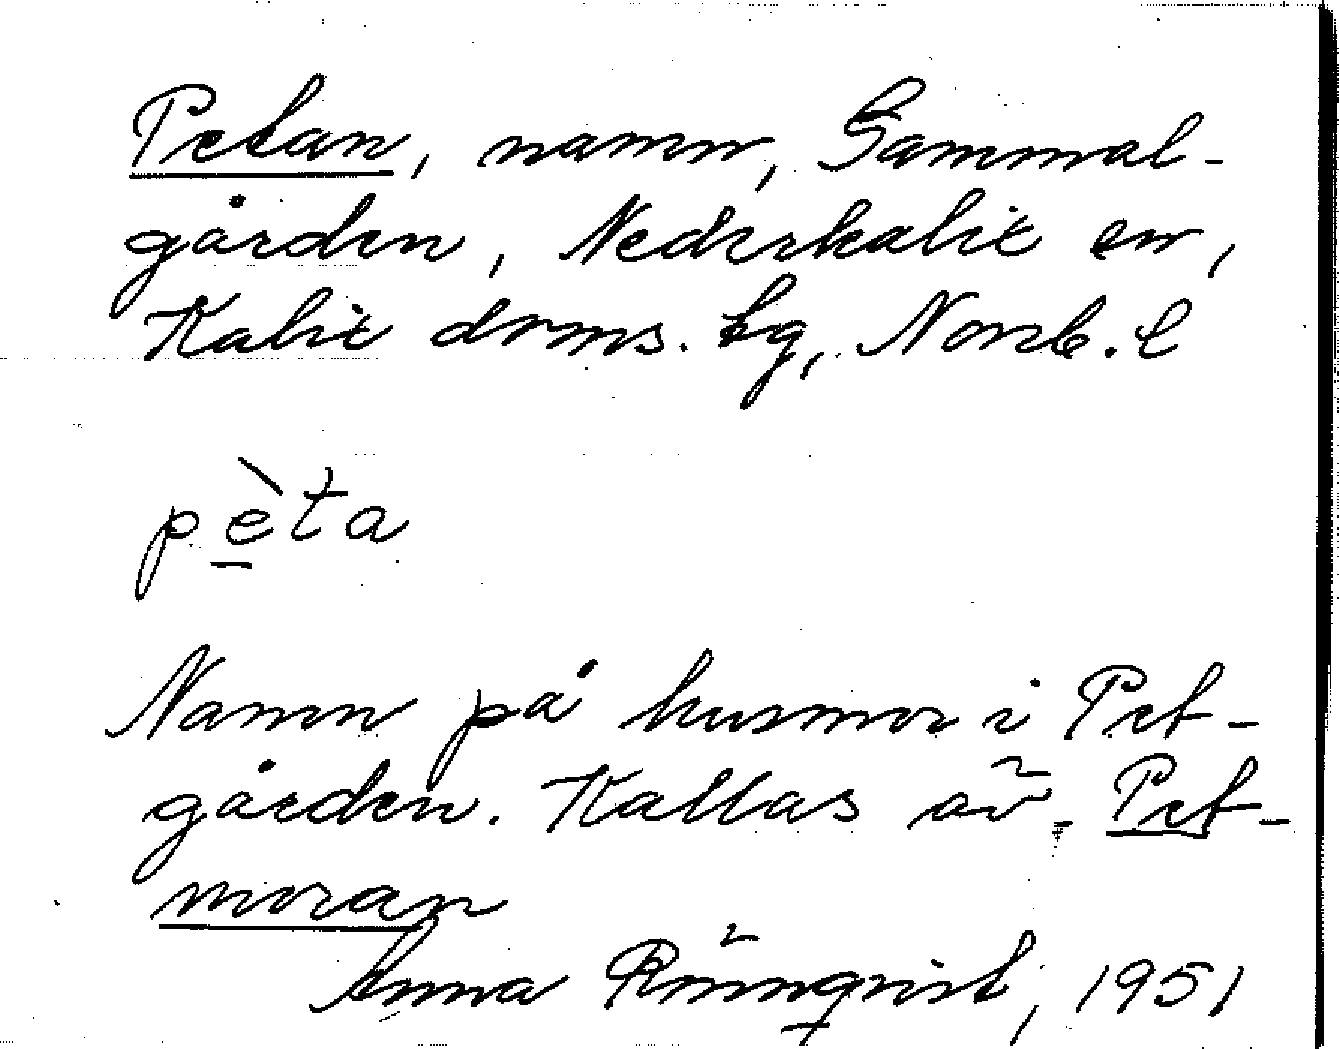 Petan, namn, Gammal-
gården, Nederkalix sn,
Kalix doms. tg, Norrb. l
pèta
Namn på husmor i Pet-
gården. Kallas äv. Pet-
moran
Anna Rönnqvist, 1951